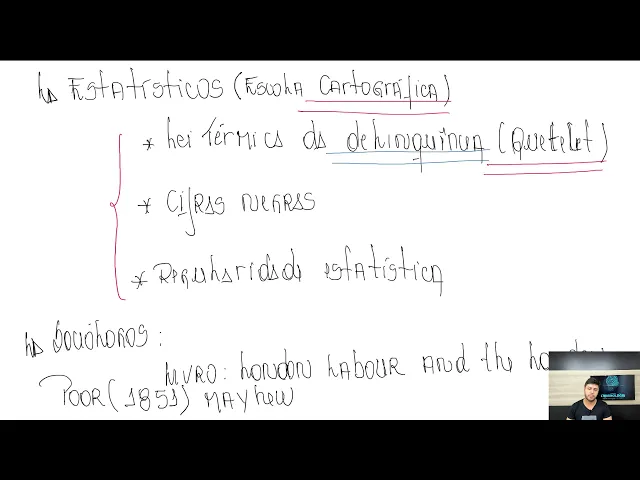 ↳ Estatísticos (Escola Cartográfica)
* Lei térmica da delinquência (Quetelet)
* Cifras negras
* Regularidade estatística
↳ Sociólogos:
Livro: London Labour and the London
Poor (1851) Mayhew